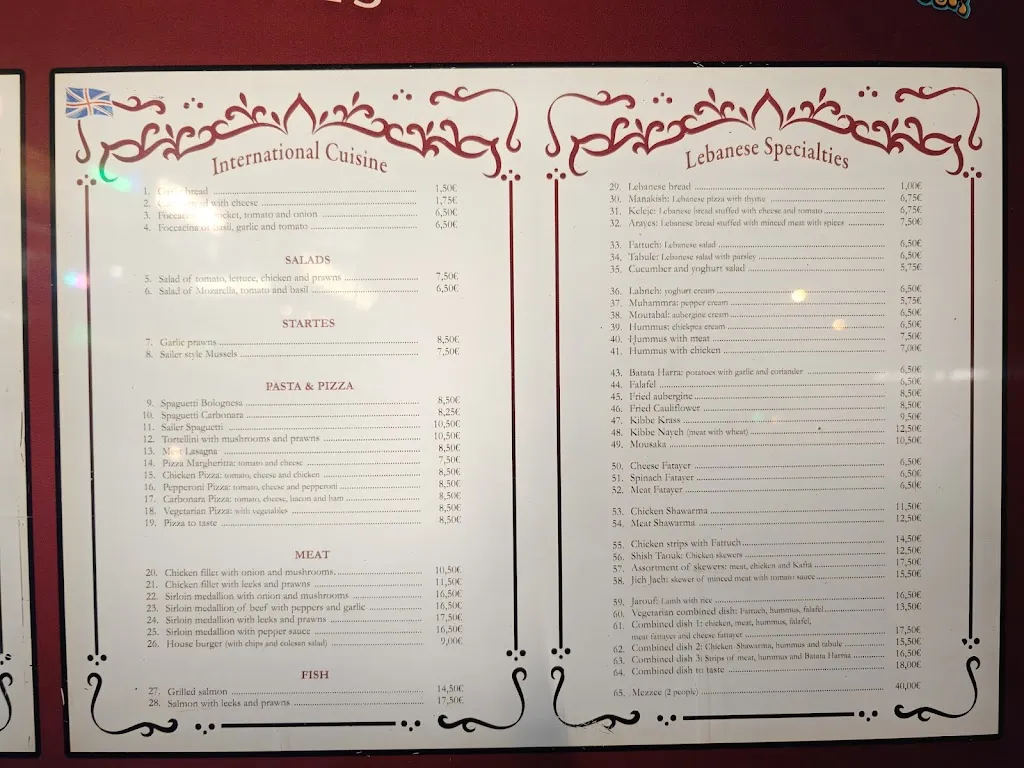 International Cuisine
1. bread 1,50€
2. with cheese 1,75€
3. Foccacina tomato and onion 6,50€
4. Foccacina of basil, garlic and tomato 6,50€
SALADS
5. Salad of tomato, lettuce, chicken and prawns 7,50€
6. Salad of Mozarella, tomato and basil 6,50€
STARTES
7. Garlic prawns 8,50€
8. Sailer style Mussels 7,50€
PASTA & PIZZA
9. Spaguetti Bolognesa 8,50€
10. Spaguetti Carbonara 8,25€
11. Sailer Spaguetti 10,50€
12. Tortellini with mushrooms and prawns 10,50€
13. Meat Lasagna 8,50€
14. Pizza Margheritta: tomato and cheese 7,50€
15. Chicken Pizza: tomato, cheese and chicken 8,50€
16. Pepperoni Pizza: tomato, cheese and pepperoni 8,50€
17. Carbonara Pizza: tomato, cheese, bacon and ham 8,50€
18. Vegetarian Pizza: with vegetables 8,50€
19. Pizza to taste 8,50€
MEAT
20. Chicken fillet with onion and mushrooms. 10,50€
21. Chicken fillet with leeks and prawns 11,50€
22. Sirloin medallion with onion and mushrooms 16,50€
23. Sirloin medallion of beef with peppers and garlic 16,50€
24. Sirloin medallion with leeks and prawns 17,50€
25. Sirloin medallion with pepper sauce 16,50€
26. House burger (with chips and coleson salad) 9,00€
FISH
27. Grilled salmon 14,50€
28. Salmon with leeks and prawns 17,50€
Lebanese Specialties
29. Lebanese bread 1,00€
30. Manakish: Lebanese pizza with thyme 6,75€
31. Keleje: Lebanese bread stuffed with cheese and tomato 6,75€
32. Arayes: Lebanese bread stuffed with minced meat with spices 7,50€
33. Fattuch: Lebanese salad 6,50€
34. Tabule: Lebanese salad with parsley 6,50€
35. Cucumber and yoghurt salad 5,75€
36. Labneh: yoghurt cream 6,50€
37. Muhammra: pepper cream 5,75€
38. Moutabal: aubergine cream 6,50€
39. Hummus: chickpea cream 6,50€
40. Hummus with meat 7,50€
41. Hummus with chicken 7,00€
43. Batata Harra: potatoes with garlic and coriander 6,50€
44. Falafel 6,50€
45. Fried aubergine 8,50€
46. Fried Cauliflower 8,50€
47. Kibbe Krass 9,50€
48. Kibbe Nayeh (meat with wheat) 12,50€
49. Mousaka 10,50€
50. Cheese Fatayer 6,50€
51. Spinach Fatayer 6,50€
52. Meat Fatayer 6,50€
53. Chicken Shawarma 11,50€
54. Meat Shawarma 12,50€
55. Chicken strips with Fattuch 14,50€
56. Shish Taouk: Chicken skewers 12,50€
57. Assortment of skewers: meat, chicken and Kafta 17,50€
58. Jich Jach: skewer of minced meat with tomato sauce 15,50€
59. Jarouf: Lamb with rice 16,50€
60. Vegetarian combined dish: Fattuch, hummus, falafel 13,50€
61. Combined dish 1: chicken, meat, hummus, falafel,
meat fattayer and cheese fattayer 17,50€
62. Combined dish 2: Chicken Shawarma, hummus and tabule 15,50€
63. Combined dish 3: Strips of meat, hummus and Batata Harma 16,50€
64. Combined dish to taste 18,00€
65. Mezzee (2 people) 40,00€